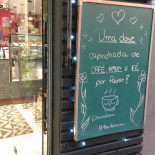 Uma dose
caprichada de
CAFÉ AMOR e FÉ
por favor!